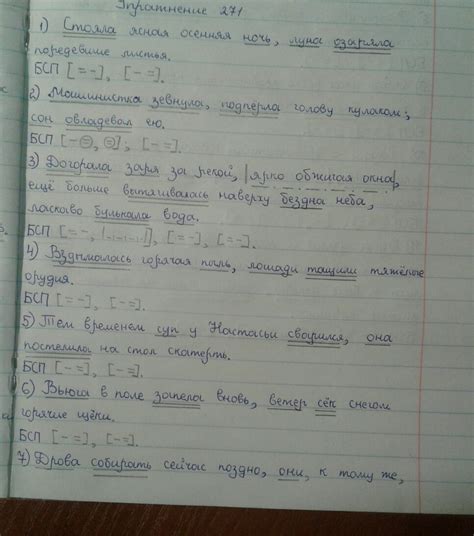 Упражнение 271
1) Стояла ясная осенняя ночь, луна озаряла
поредевшие листья.
БСП [= -], [- =].
2) Машинистка зевнула, подпёрла голову кулаком;
сон овладевал ею.
БСП [- =, =], [- =].
3) Догорала заря за рекой, |ярко обжигая окна|,
ещё больше вытягивалась наверху бездна неба,
ласково булькала вода.
БСП [= -, |_._._._.|], [= -], [= -].
4) Вздымалась горячая пыль, лошади тащили тяжёлые
орудия.
БСП [= -], [- =].
5) Тем временем суп у Настасьи сварился, она
постелила на стол скатерть.
БСП [- =], [- =].
6) Вьюга в поле запела вновь, ветер сёк снегом
горячие щёки.
БСП [- =], [- =].
7) Дрова собирать сейчас поздно, они, к тому же,